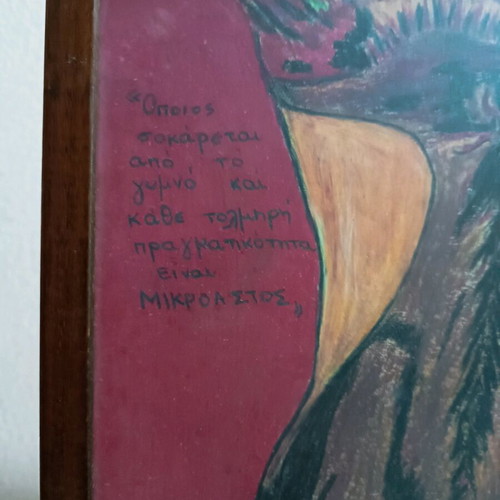 “Όποιος
σοκάρεται
από το
γυμνό και
κάθε τολμηρή
πραγματικότητα
είναι
ΜΙΚΡΟΑΣΤΟΣ„